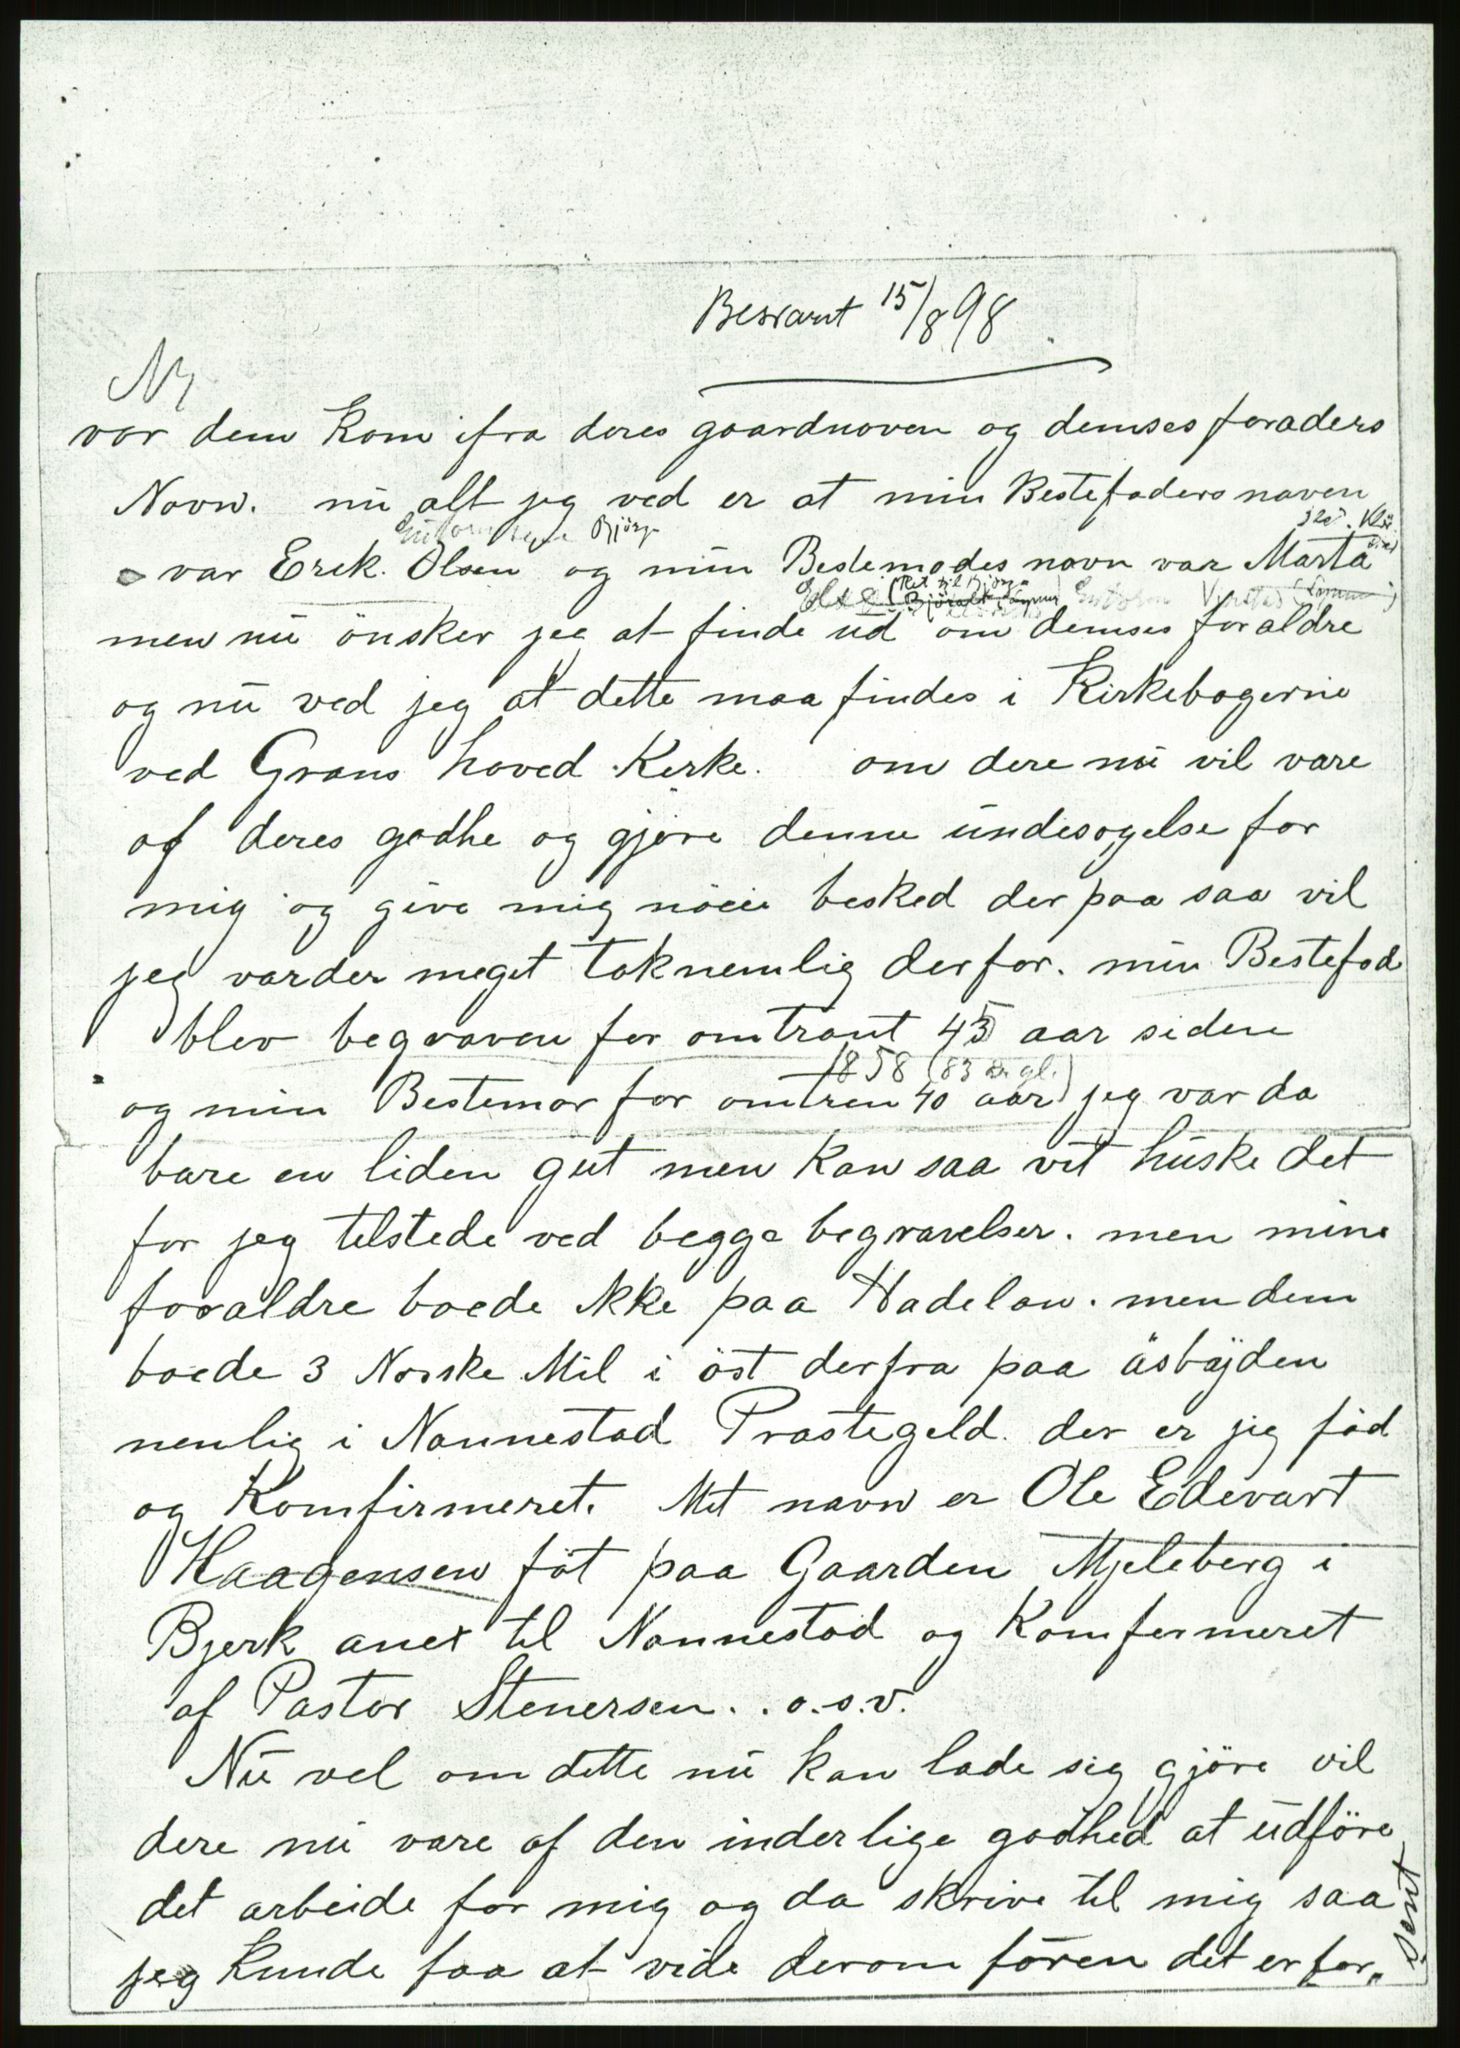 Besvart 15/8 98
vor dem kom ifra deres gaardnoven og demses foraders
Novn. nu alt jeg ved er at min Bestefaders naven
Bjørge
var Erek. Olsen og min Bestemodes navn var Marta
Else
men nu önsker jeg at finde ud om demses foraldre
og nu ved jeg at dette maa findes i Kirkebogerne
ved Grans hoved Kerke. om dere nu vil vare
af deres godhe og gjöre denne undesogelse for
mig og give mig nöeie besked der paa saa vil
jeg varder meget taknemlig derfor. min Bestefad
blev begraven for omtrant 45 aar sidene
1858 (83 gl.)
og min Bestemor for omtren 40 aar jeg var da
bare en liden gut men kan saa vit huske det
for jeg telstede ved begge begravelser. men mine
foraldre boede Ikke paa Hadelan. men dem
boede 3 Norske Mil i öst derfra paa åsbäjden
nenlig i Nannestad Prastegeld. der er jeg föd
og Komfirmeret. Met navn er Ole Edevart
Haagensen föt paa Gaarden Mjeleberg i
Bjerk anex til Nannestad og Komfermeret
af Pastor Stenersen. . o.s.v.
Nu vel om dette nu kan lade sig gjöre vil
dere nu vare af den inderlige godhed at udföre
det arbeide for mig og da skrive til mig saa
jeg kunde faa at vide derom fören det er for„
sent